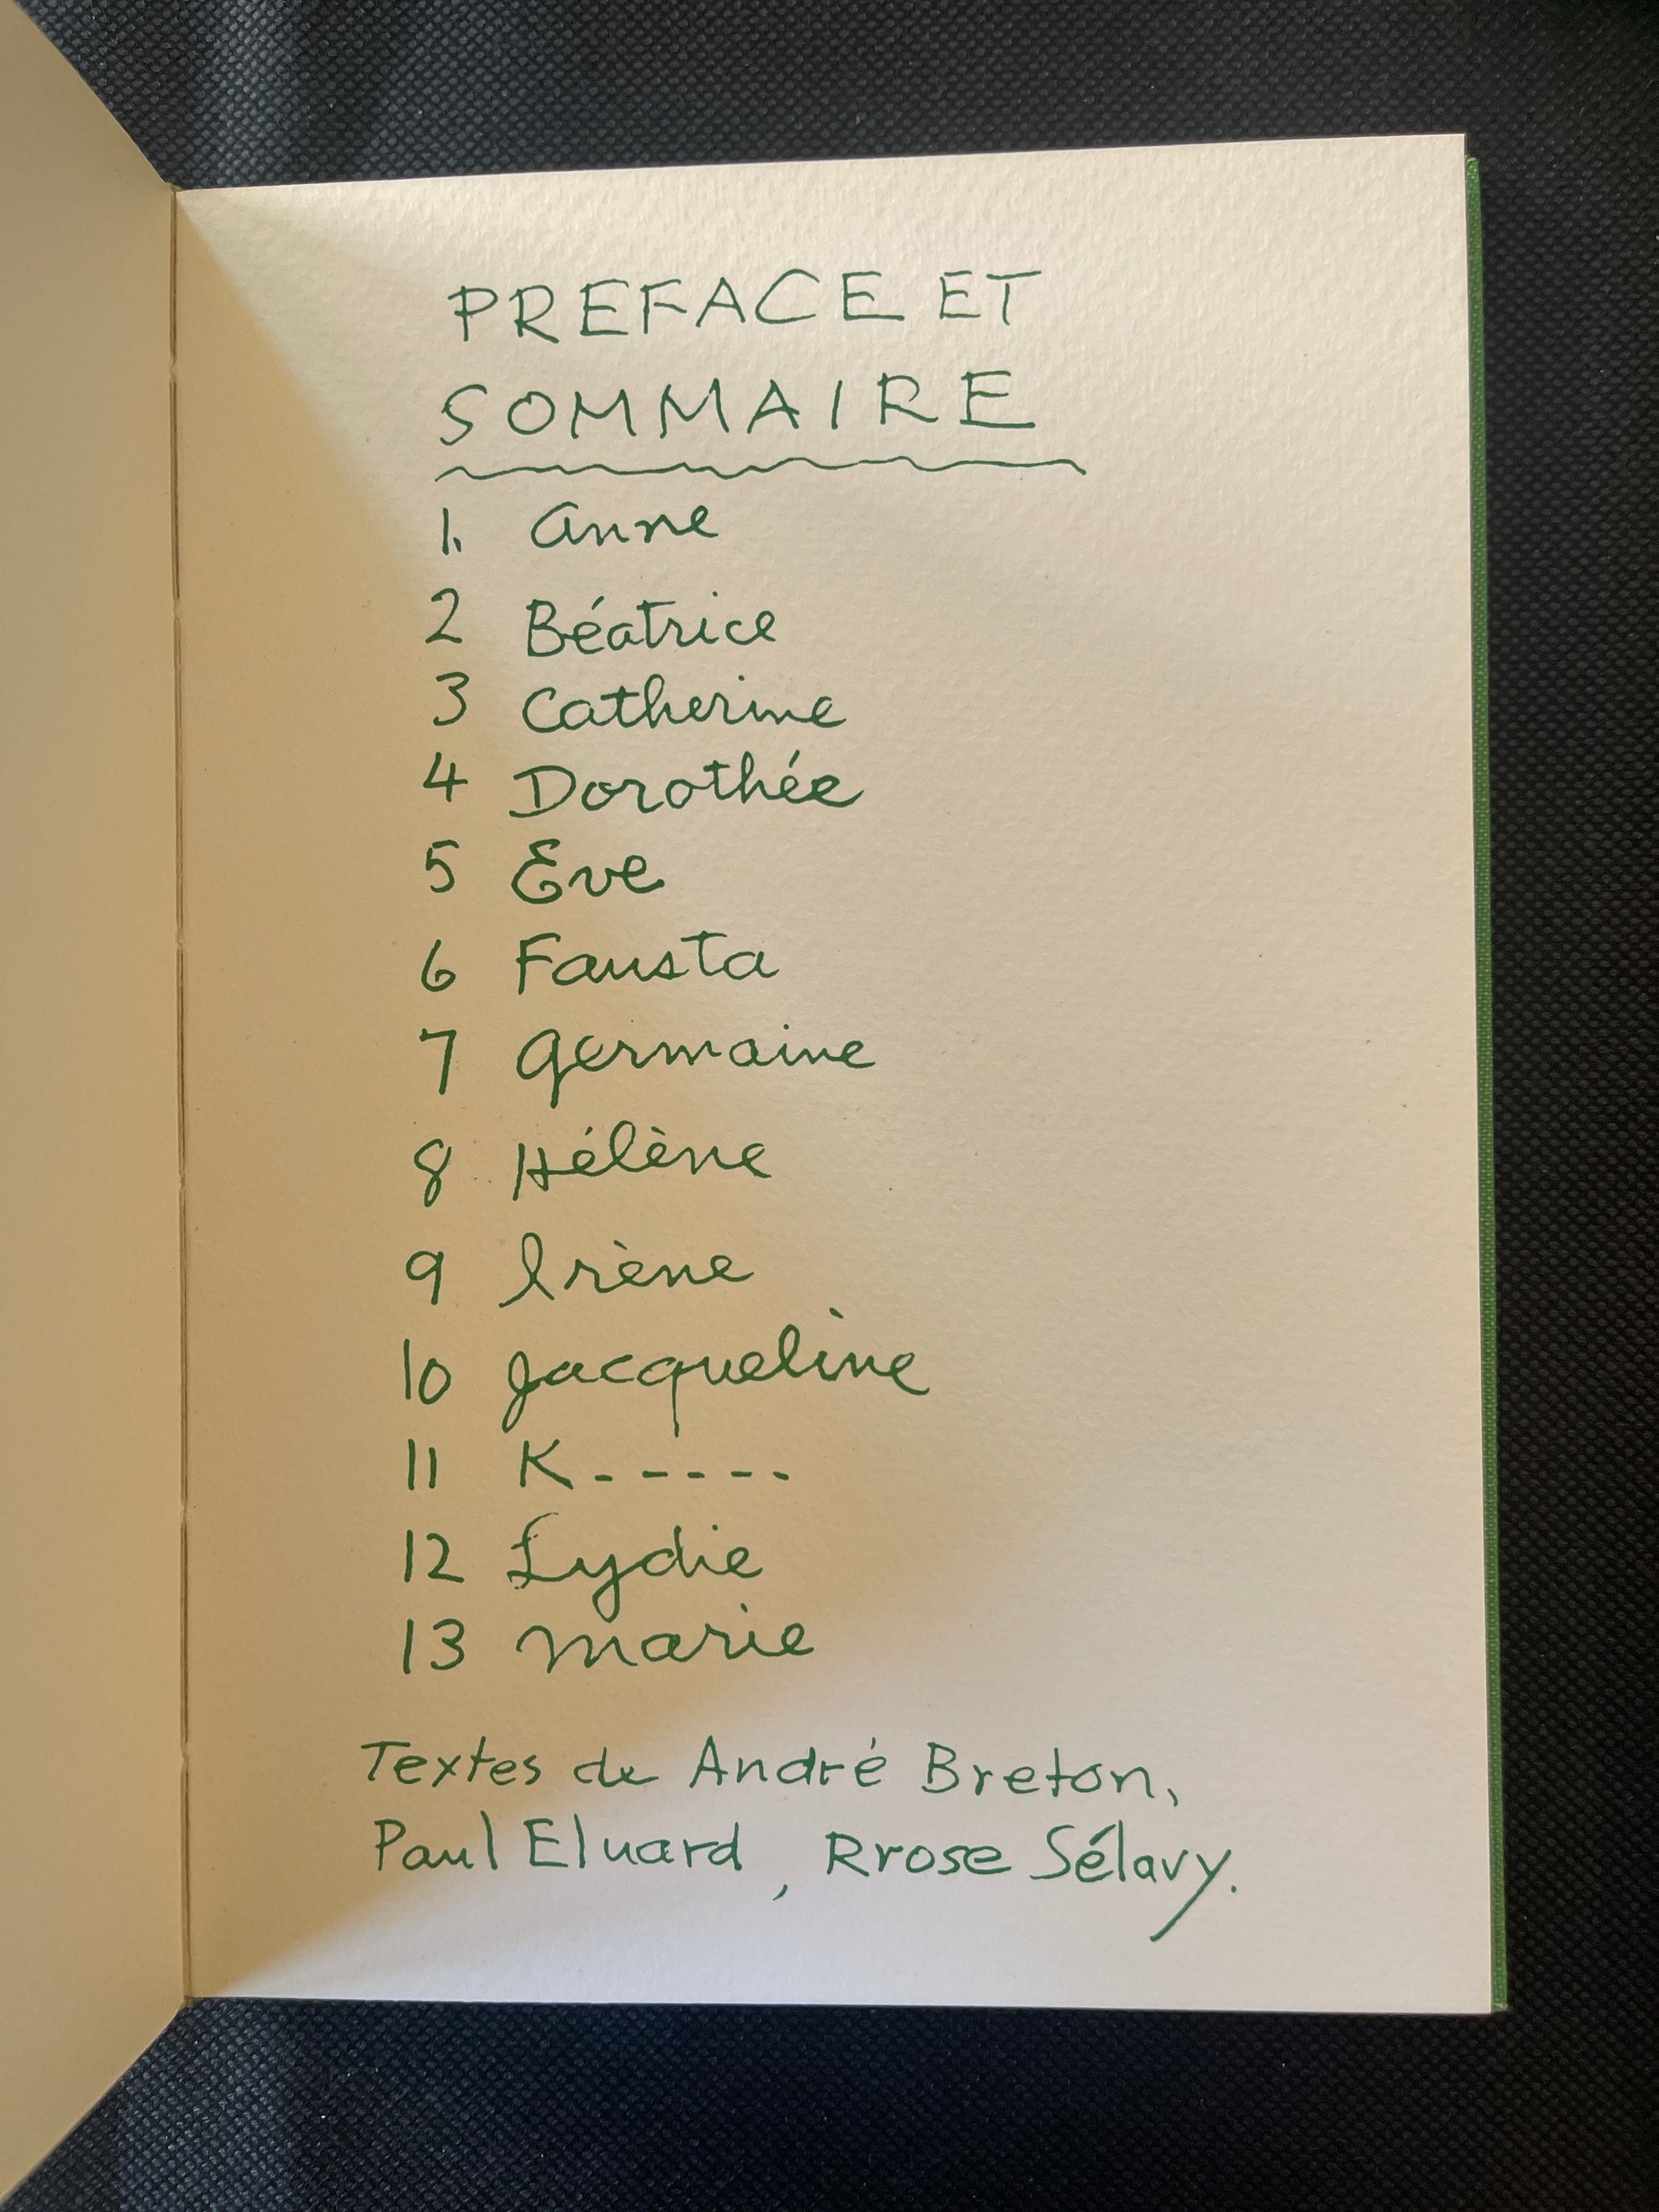 PREFACE ET
SOMMAIRE
1. Anne
2 Béatrice
3 Catherine
4 Dorothée
5 Eve
6 Fausta
7 Germaine
8 Hélène
9 Irène
10 Jacqueline
11 K------
12 Lydie
13 Marie
Textes de André Breton,
Paul Eluard, Rrose Sélavy.